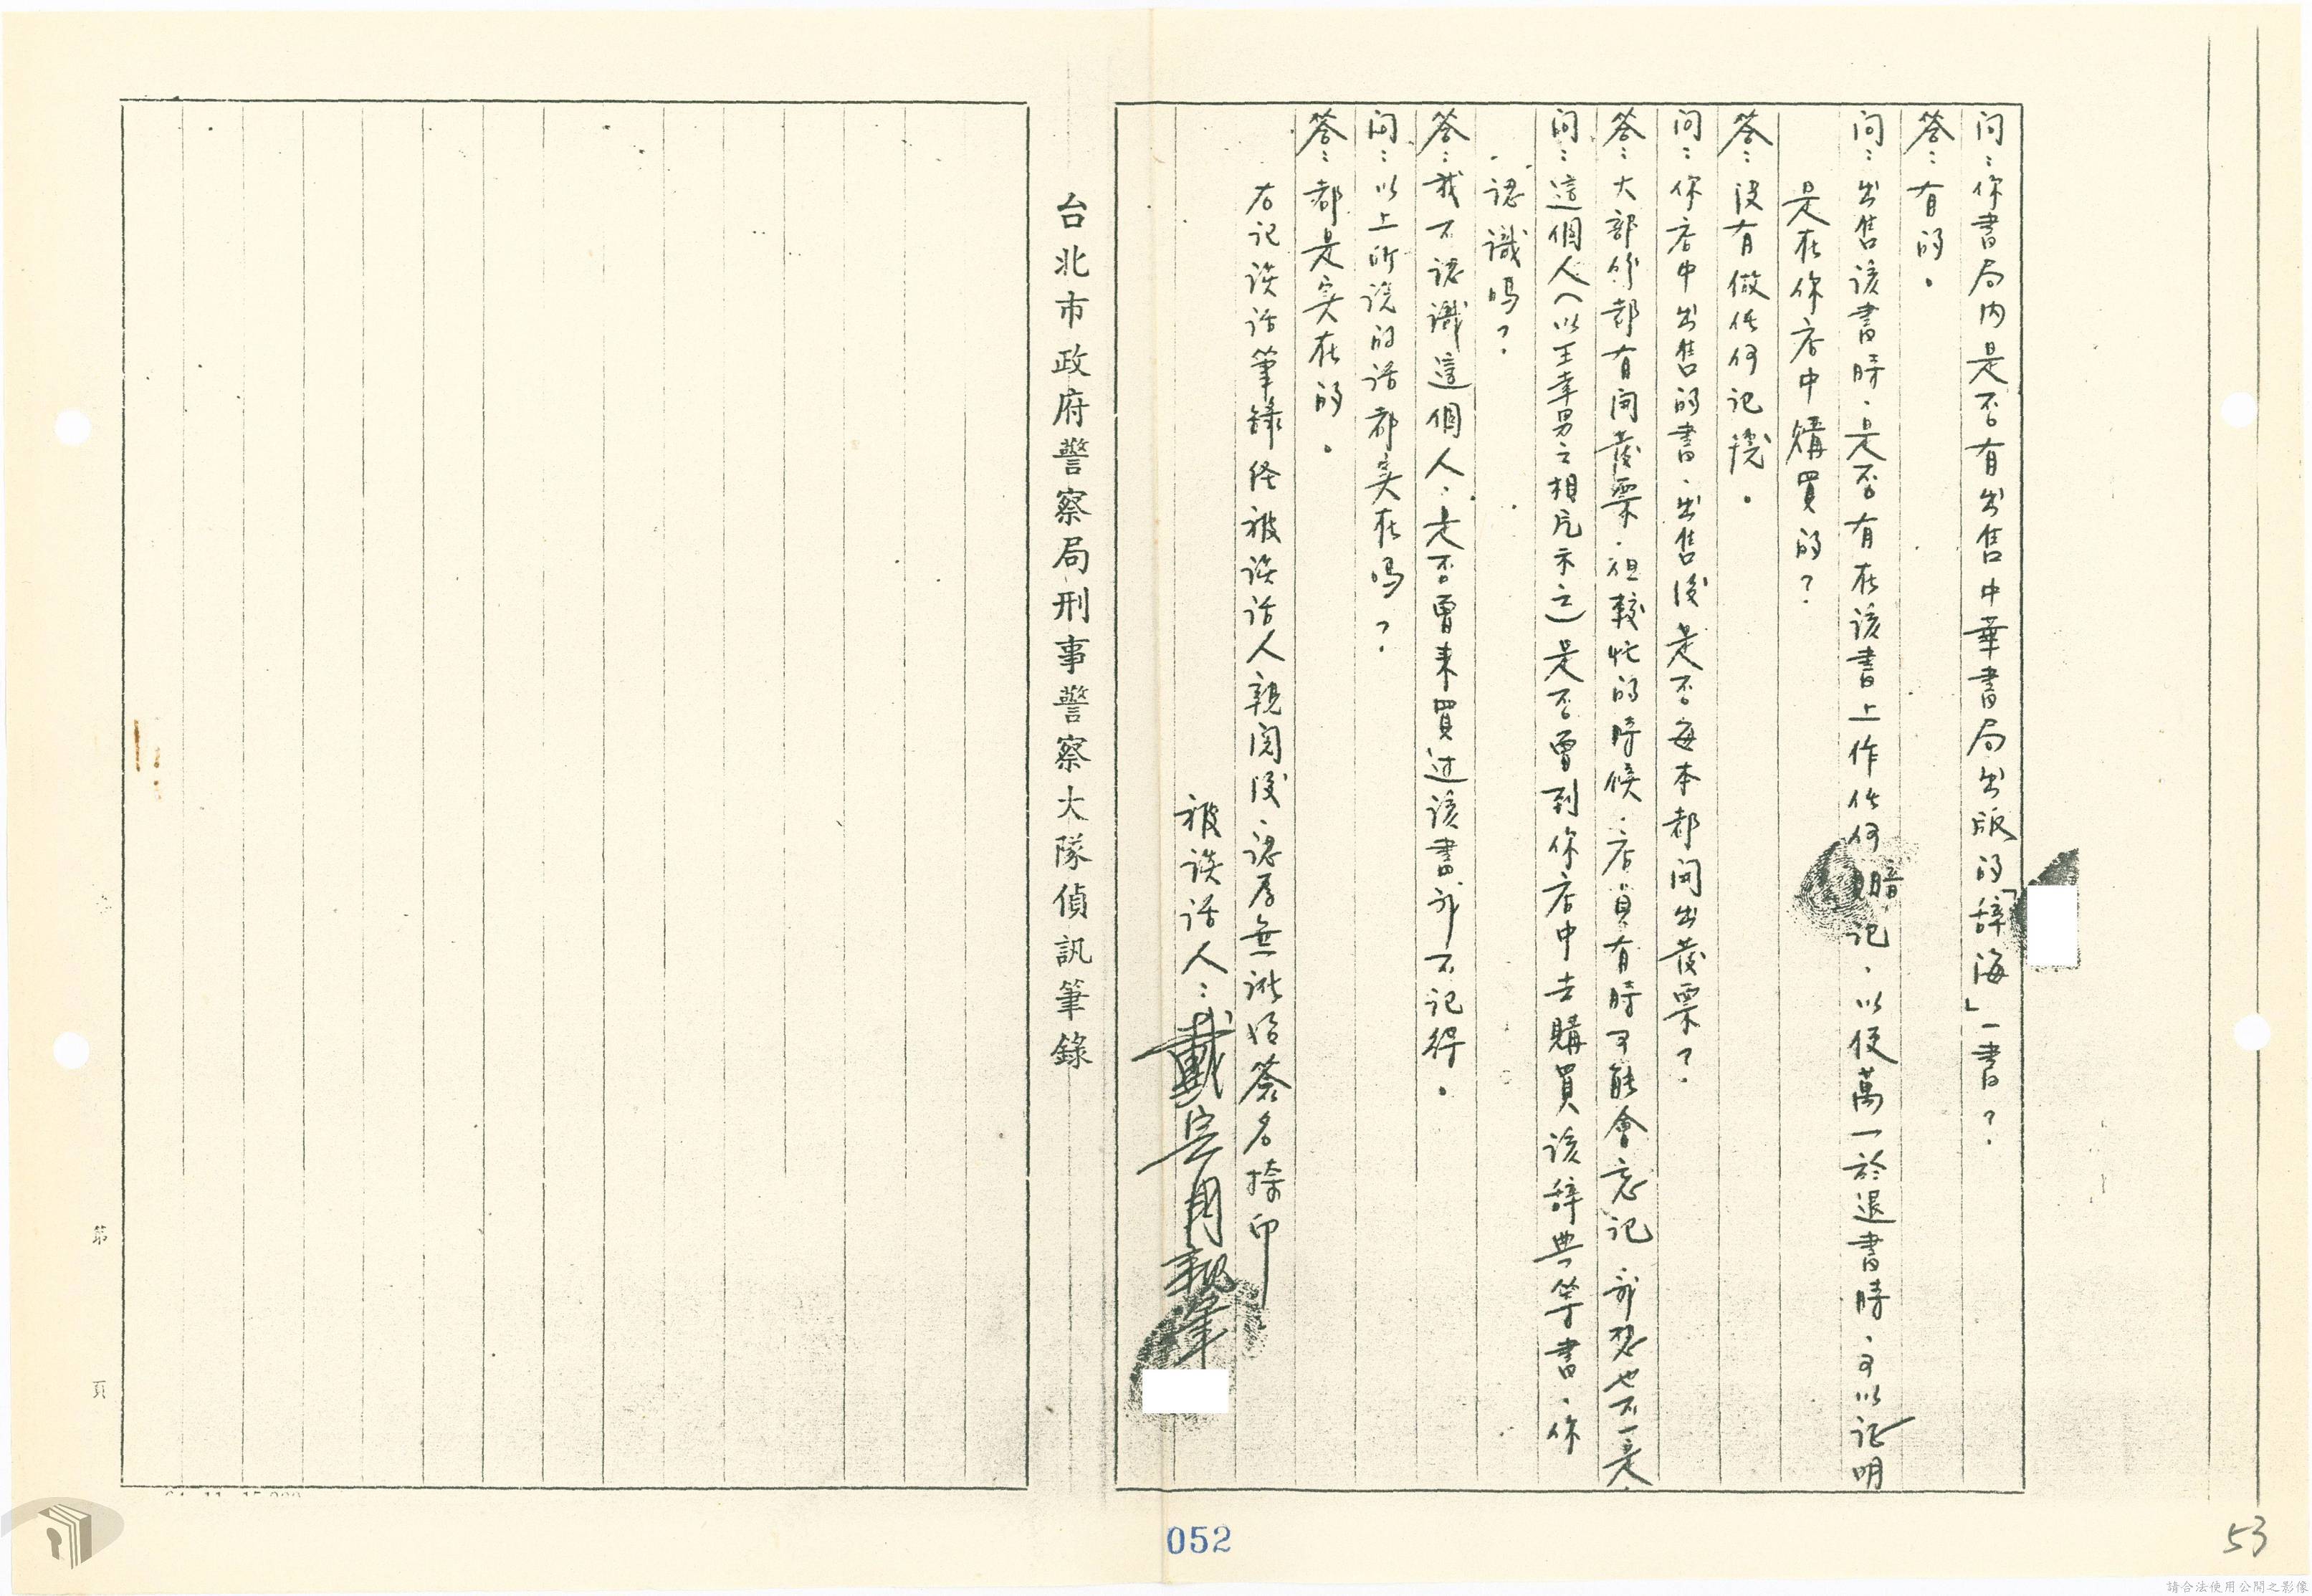 问：你書局内是否有出售中華書局出版的「辞海」一書？
答：有的。
问：出售该書時，是否有在该書上作任何暗记，以便萬一於退書時，可以证明
是在你店中購買的？
答：没有做任何记號。
问：你店中出售的書，出售後是否每本都開出發票？
答：大部份都有開發票，但較忙的時候，店員有時可能會忘记
问：這個人（以王幸男之相片示之）是否曾到你店中去購買该辞典等書，你
認識嗎？
答：我不認識這個人，是否曾来買过该書我不记得。
问：以上所说的话都实在嗎？
答：都是实在的。
右记谈话筆録经被谈话人親閲後，認為無訛始簽名捺印
被谈话人：戴
台北市政府警察局刑事警察大隊偵訊筆錄
第 頁
052
53
請合法使用公開之影像